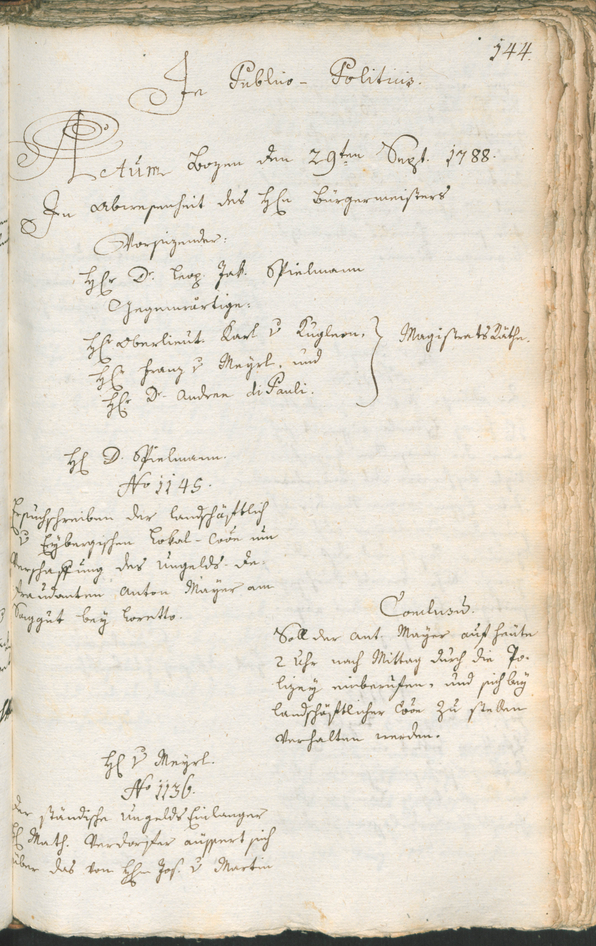 144.
In Publico-Politicis.
Actum Bozen den 29ten Sept. 1788.
In Abwesenheit des Hℓn Bürgermeisters
Vorsizender:
Hℓr Dr. Leop. Jak. Spielmann
Gegenwärtige:
Hℓ Oberlieut. Karl v Kuglern,
Hℓ Franz v Meyrl, und
Hℓr Dr. Andree di Pauli.
Magistrats Räthe.
Hℓ D. Spielmann.
No 1145.
Ersuchschreiben der landschäftlich
v Eybergischen Lokal-Coon um
Verschaffung des Ungelds-De-
fraudanten Anton Mayer am
Saggut bey Loretto.
Conclusū.
Soll der Ant. Mayer auf heute
2 Uhr nach Mittag durch die Po-
lizey einberufen, und sich bey
landschäftlicher Coon zu stellen
verhalten werden.
Hℓ v Meyrl.
No 1136.
Der ständische Ungelds Einlanger
Hℓ Math. Verdorfer äussert sich
über das vom Hℓn Jos. v Martin